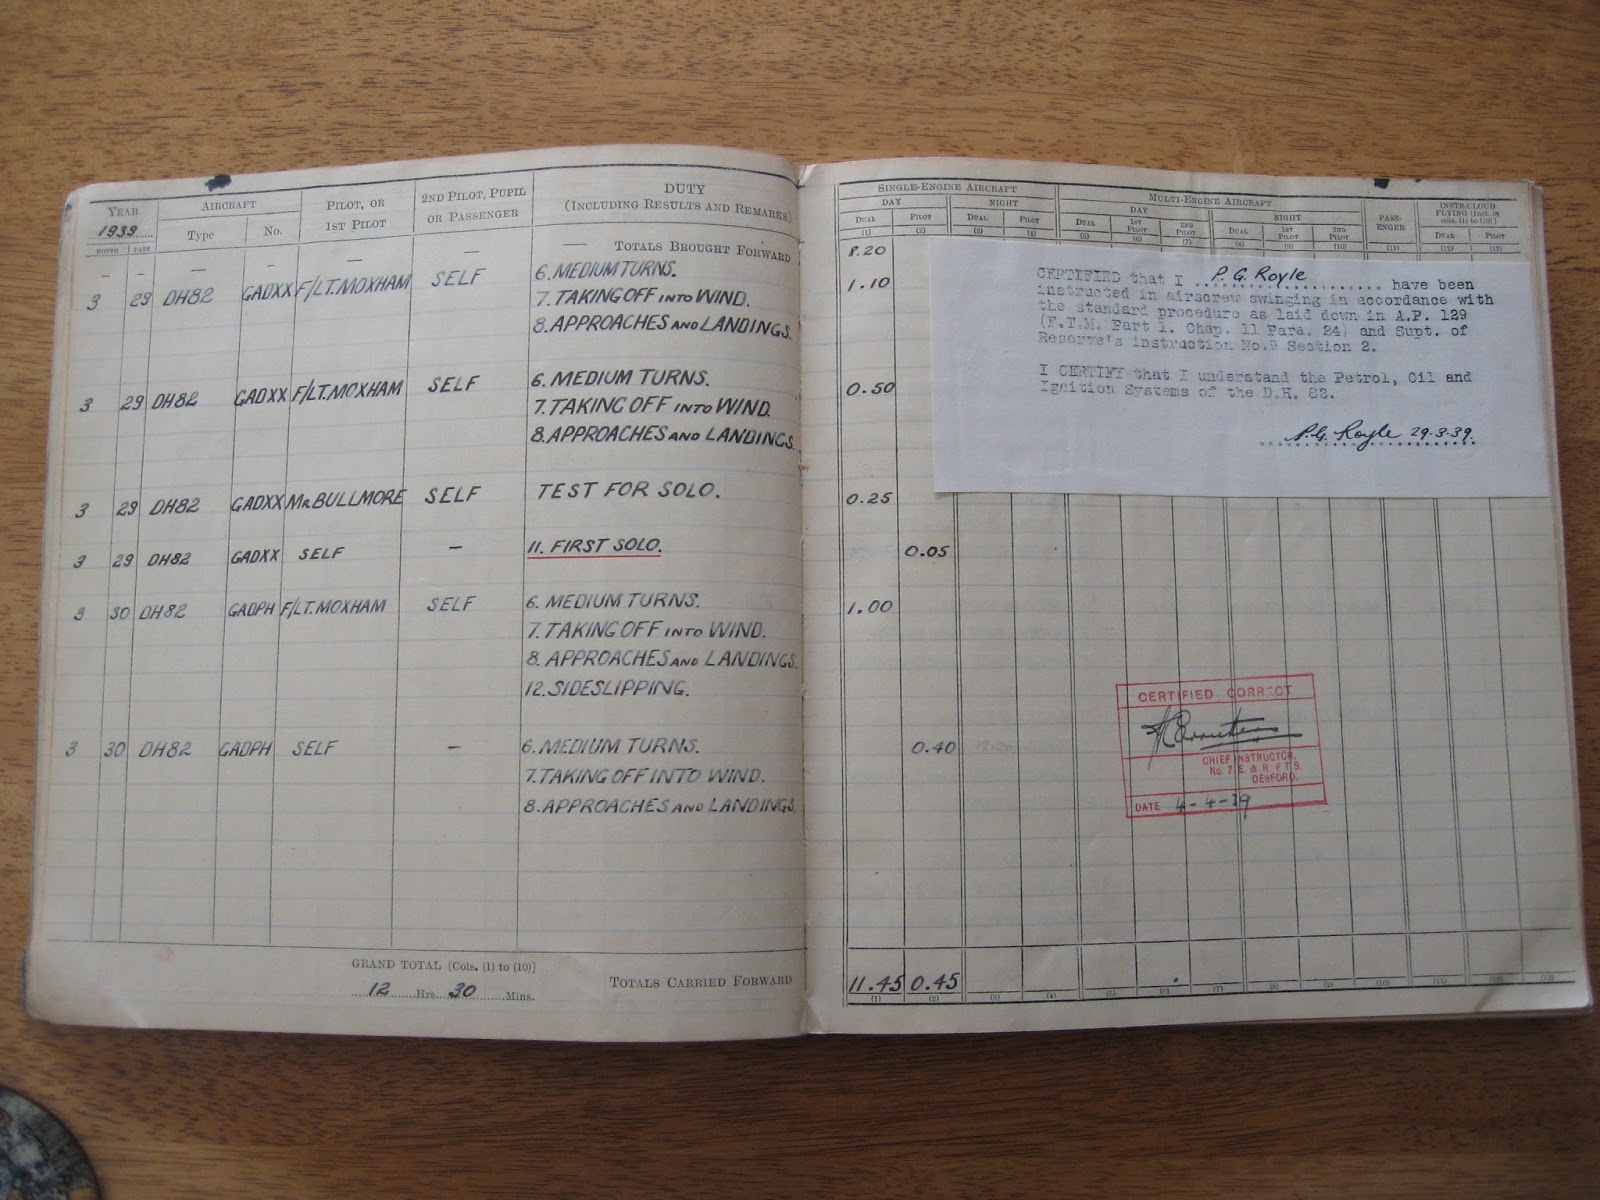 YEAR AIRCRAFT PILOT, OR 2ND PILOT, PUPIL DUTY
1939 Type No. 1ST PILOT OR PASSENGER (INCLUDING RESULTS AND REMARKS)
MONTH DATE
TOTALS BROUGHT FORWARD
— — — — — 6. MEDIUM TURNS.
3 29 DH82 GADXX F/LT. MOXHAM SELF 7. TAKING OFF INTO WIND.
8. APPROACHES AND LANDINGS.
3 29 DH82 GADXX F/LT. MOXHAM SELF 6. MEDIUM TURNS.
7. TAKING OFF INTO WIND.
8. APPROACHES AND LANDINGS.
3 29 DH82 GADXX MR BULLMORE SELF TEST FOR SOLO.
3 29 DH82 GADXX SELF — 11. FIRST SOLO.
3 30 DH82 GADPH F/LT. MOXHAM SELF 6. MEDIUM TURNS.
7. TAKING OFF INTO WIND.
8. APPROACHES AND LANDINGS.
12. SIDESLIPPING.
3 30 DH82 GADPH SELF — 6. MEDIUM TURNS.
7. TAKING OFF INTO WIND.
8. APPROACHES AND LANDINGS.
GRAND TOTAL [Cols. (1) to (10)]
12 Hrs. 30 Mins.
TOTALS CARRIED FORWARD
SINGLE-ENGINE AIRCRAFT MULTI-ENGINE AIRCRAFT PASS-ENGER INSTR/CLOUD FLYING [Incl. in cols. (1) to (10)]
DAY NIGHT DAY NIGHT
DUAL PILOT DUAL PILOT DUAL 1ST PILOT 2ND PILOT DUAL 1ST PILOT 2ND PILOT DUAL PILOT
(1) (2) (3) (4) (5) (6) (7) (8) (9) (10) (11) (12) (13)
8.20
1.10
0.50
0.25
0.05
1.00
0.40
11.45 0.45
(1) (2) (3) (4) (5) (6) (7) (8) (9) (10) (11) (12) (13)
CERTIFIED that I P. G. Royle have been
instructed in airscrew swinging in accordance with
the standard procedure as laid down in A.P. 129
(F.T.M. Part 1. Chap. 11 Para. 24) and Supt. of
Reserve's instruction No.9 Section 2.
I CERTIFY that I understand the Petrol, Oil and
Ignition Systems of the D.H. 82.
P.G. Royle 29.3.39.
CERTIFIED CORRECT
CHIEF INSTRUCTOR,
No. 7 E. & R. F.T.S.
DESFORD.
DATE 4-4-39